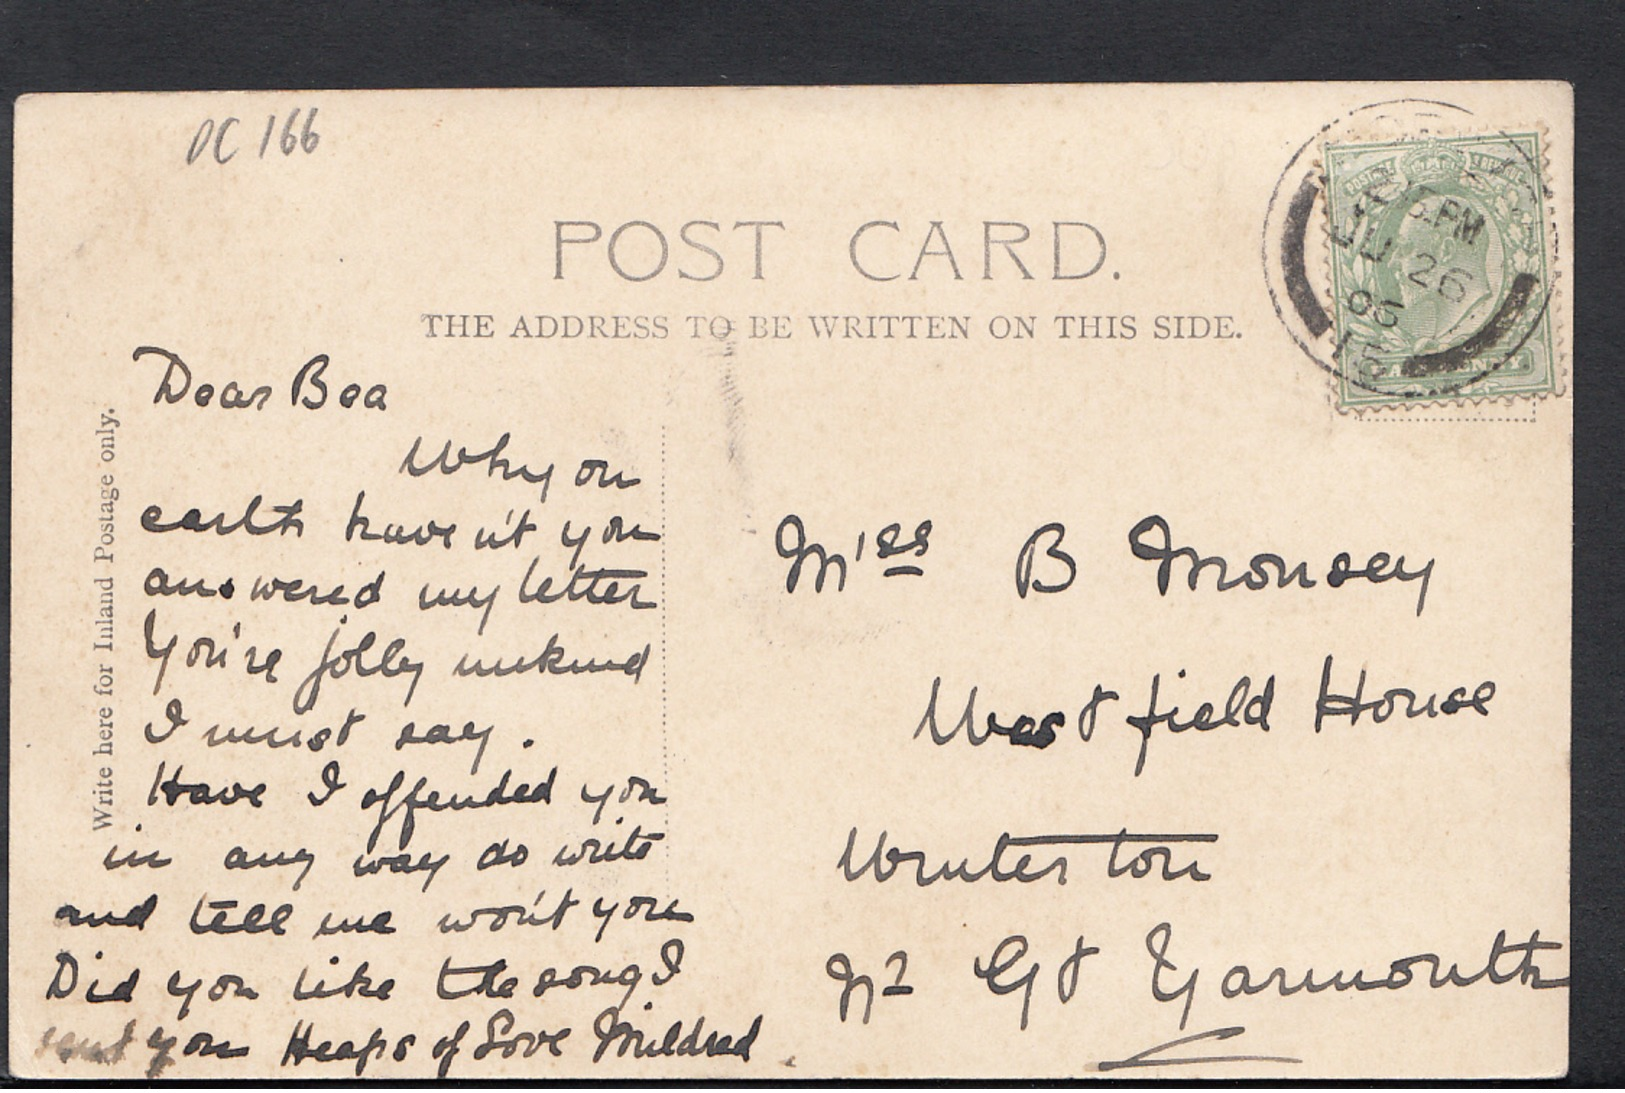 PC 166
POST CARD.
THE ADDRESS TO BE WRITTEN ON THIS SIDE.
Write here for Inland Postage only.
Dear Bea
Why on
earth have n't you
answered my letter
You're jolly unkind
I must say.
Have I offended you
in any way do write
and tell me won't you
Did you like the song I
sent you Heaps of Love Mildred
Miss B Monsey
West field House
Winterton
Nr Gt Yarmouth
PM
26
05